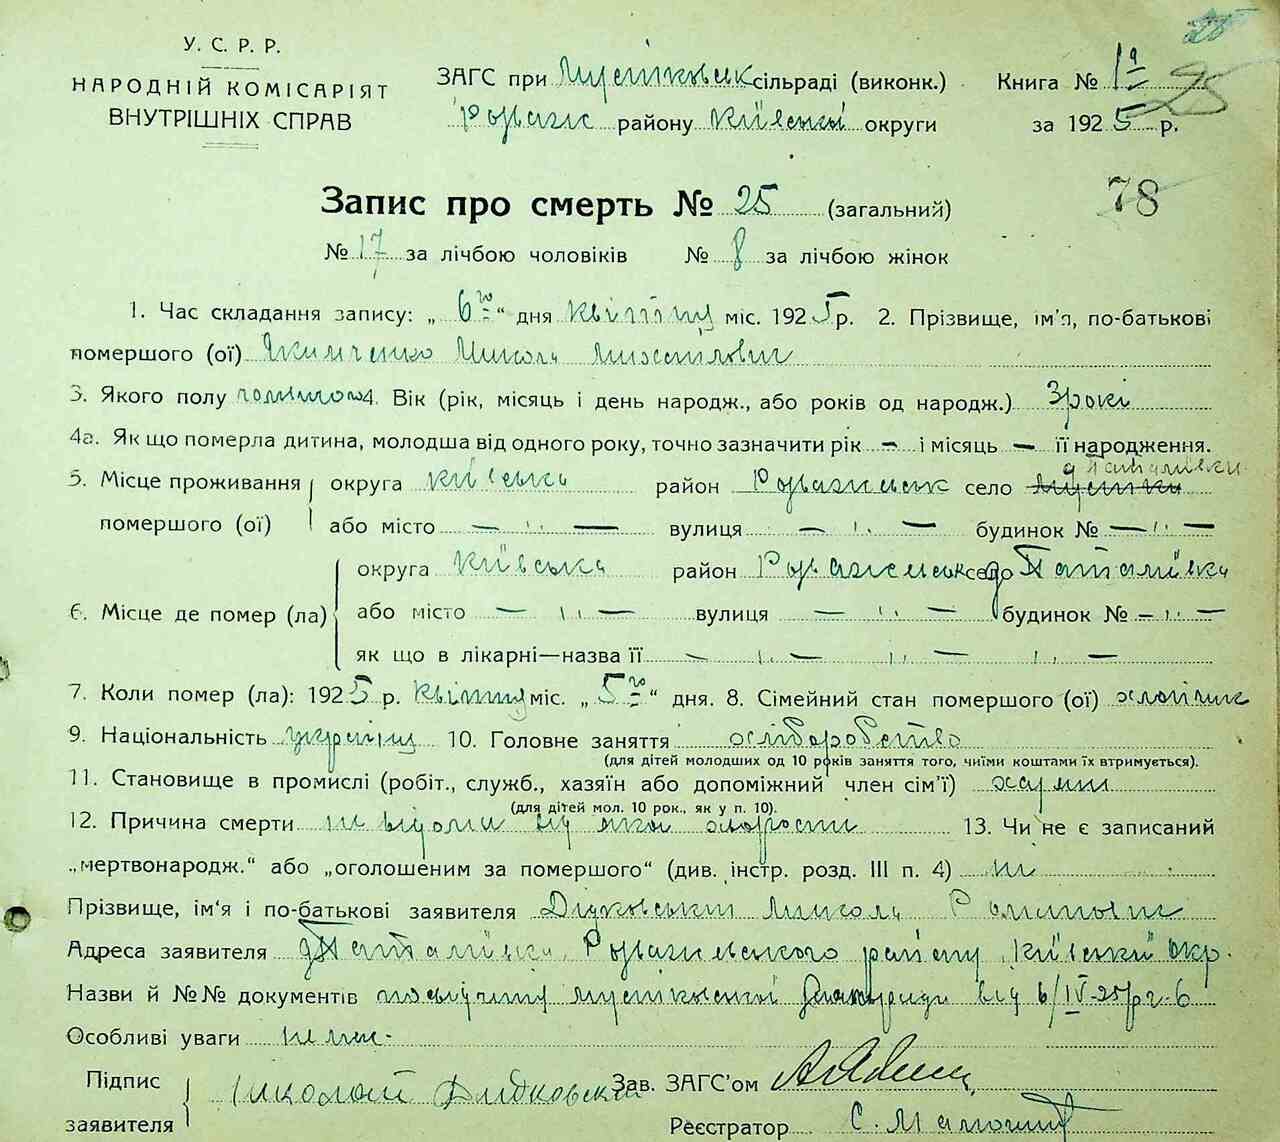 У. С. Р. Р.
НАРОДНІЙ КОМІСАРІЯТ
ВНУТРІШНІХ СПРАВ
ЗАГС при Мусійковськ сільраді (виконк.)
Розважів району Київської округи
Книга № 1а 25
за 1925 р.
78
Запис про смерть № 25 (загальний)
№ 17 за лічбою чоловіків № 8 за лічбою жінок
1. Час складання запису: „ 6го “ дня квітня міс. 1925 р. 2. Прізвище, ім'я, по-батькові
помершого (ої) Якимченко Микола Михайлович
3. Якого полу чоловічого 4. Вік (рік, місяць і день народж., або років од народж.) 3 рокі
4а. Як що померла дитина, молодша від одного року, точно зазначити рік — і місяць — її народження.
5. Місце проживання округа київська район Розважівськ село
помершого (ої) або місто — „ — вулиця — „ — будинок № — „ —
округа Київська район Розважівськ село
6. Місце де помер (ла) або місто — „ — вулиця — „ — будинок № — „ —
як що в лікарні—назва її — „ — „ — „ —
7. Коли помер (ла): 1925 р. квітня міс. „ 5го “ дня. 8. Сімейний стан помершого (ої) хлопчик
9. Національність українц 10. Головне заняття хліборобство
(для дітей молодших од 10 років заняття того, чиїми коштами їх втримується).
11. Становище в промислі (робіт., служб., хазяїн або допоміжний член сім'ї)
(для дітей мол. 10 рок., як у п. 10).
12. Причина смерти не відома від якої хвороби 13. Чи не є записаний
„мертвонародж.“ або „оголошеним за помершого“ (див. інстр. розд. III п. 4) ні
Прізвище, ім'я і по-батькові заявителя Дідковський Микола Романович
Адреса заявителя Розважівського району Київської окр.
Назви й №№ документів мусійковської від 6/IV-25р
Особливі уваги немає.
Підпис
заявителя Николай Дидковский
Зав. ЗАГС'ом
Реєстратор С.